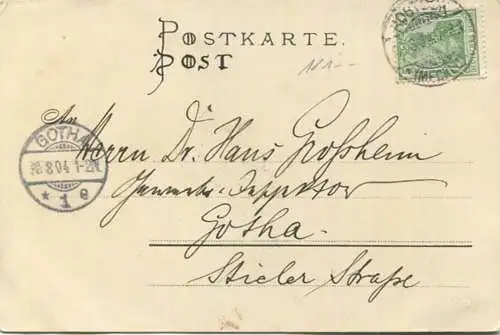 POSTKARTE.
POST
181.-
An
Herrn Dr. Hans Großheim
Gewerbe-Inspektor
Gotha.
Stieler Straße
GOTHA
8 04 1-2N
* 1 e
(MECK